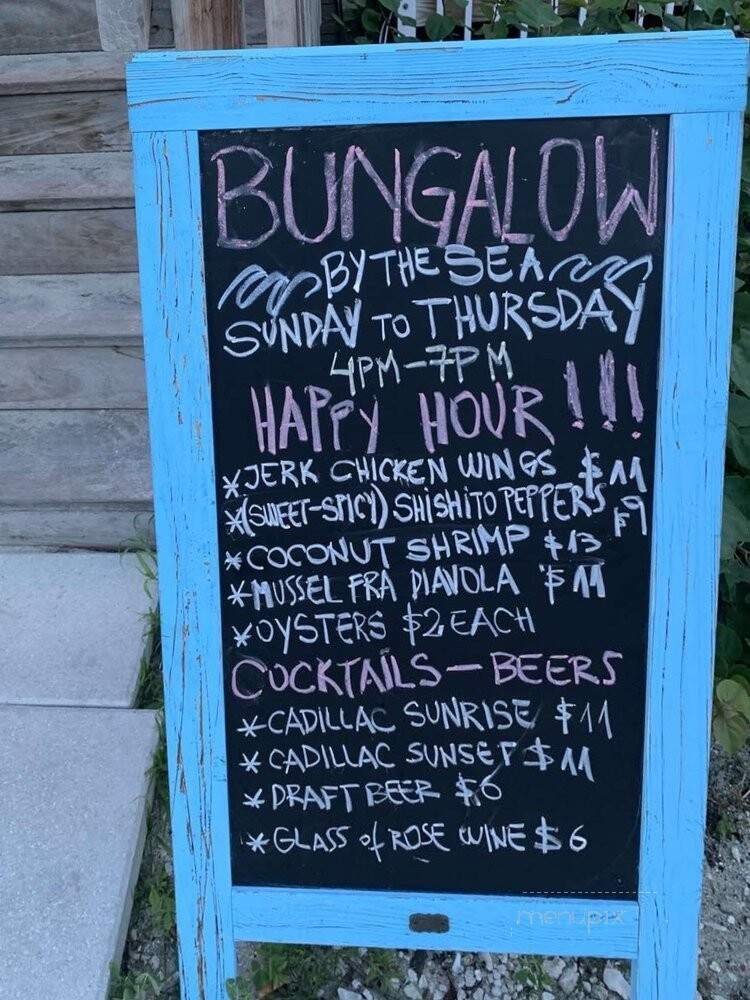 BUNGALOW
BY THE SEA
SUNDAY TO THURSDAY
4PM-7PM
HAPPY HOUR!!!
*JERK CHICKEN WINGS $11
*(SWEET-SPICY) SHISHITO PEPPERS $9
*COCONUT SHRIMP $13
*MUSSEL FRA DIAVOLA $11
*OYSTERS $2 EACH
COCKTAILS-BEERS
*CADILLAC SUNRISE $11
*CADILLAC SUNSET $11
*DRAFT BEER $6
*GLASS of ROSE WINE $6
menupix